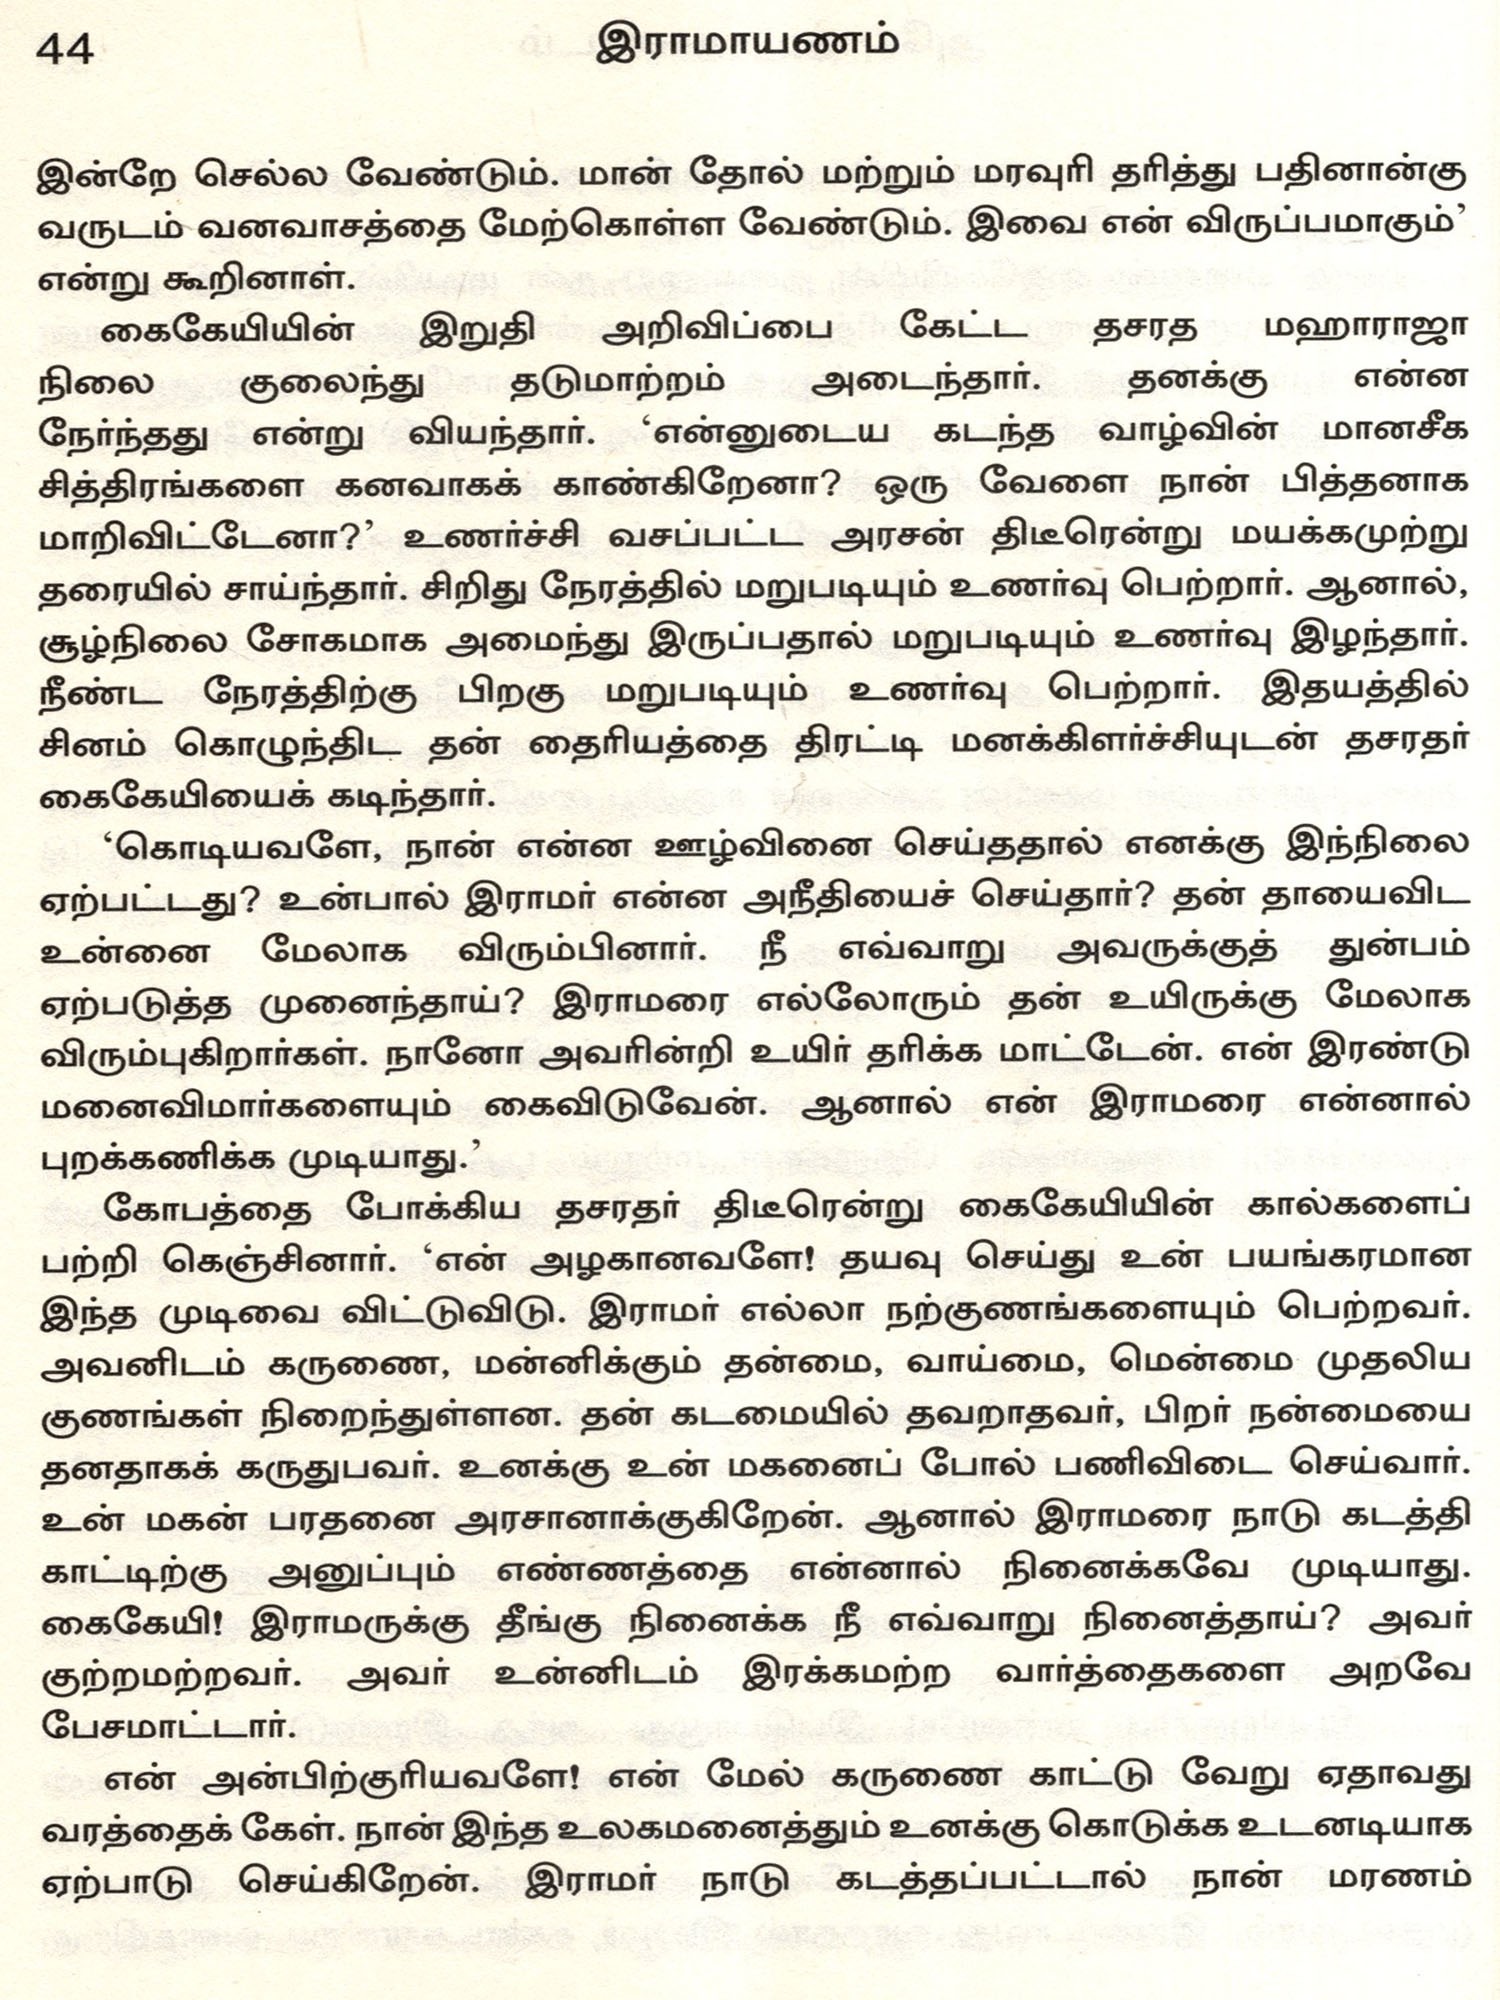 44
இராமாயணம்
இன்றே செல்ல வேண்டும். மான் தோல் மற்றும் மரவுரி தரித்து பதினான்கு
வருடம் வனவாசத்தை மேற்கொள்ள வேண்டும். இவை என் விருப்பமாகும்’
என்று கூறினாள்.
கைகேயியின் இறுதி அறிவிப்பை கேட்ட தசரத மஹாராஜா
நிலை குலைந்து தடுமாற்றம் அடைந்தார். தனக்கு என்ன
நேர்ந்தது என்று வியந்தார். ‘என்னுடைய கடந்த வாழ்வின் மானசீக
சித்திரங்களை கனவாகக் காண்கிறேனா? ஒரு வேளை நான் பித்தனாக
மாறிவிட்டேனா?’ உணர்ச்சி வசப்பட்ட அரசன் திடீரென்று மயக்கமுற்று
தரையில் சாய்ந்தார். சிறிது நேரத்தில் மறுபடியும் உணர்வு பெற்றார். ஆனால்,
சூழ்நிலை சோகமாக அமைந்து இருப்பதால் மறுபடியும் உணர்வு இழந்தார்.
நீண்ட நேரத்திற்கு பிறகு மறுபடியும் உணர்வு பெற்றார். இதயத்தில்
சினம் கொழுந்திட தன் தைரியத்தை திரட்டி மனக்கிளர்ச்சியுடன் தசரதர்
கைகேயியைக் கடிந்தார்.
‘கொடியவளே, நான் என்ன ஊழ்வினை செய்ததால் எனக்கு இந்நிலை
ஏற்பட்டது? உன்பால் இராமர் என்ன அநீதியைச் செய்தார்? தன் தாயைவிட
உன்னை மேலாக விரும்பினார். நீ எவ்வாறு அவருக்குத் துன்பம்
ஏற்படுத்த முனைந்தாய்? இராமரை எல்லோரும் தன் உயிருக்கு மேலாக
விரும்புகிறார்கள். நானோ அவரின்றி உயிர் தரிக்க மாட்டேன். என் இரண்டு
மனைவிமார்களையும் கைவிடுவேன். ஆனால் என் இராமரை என்னால்
புறக்கணிக்க முடியாது.’
கோபத்தை போக்கிய தசரதர் திடீரென்று கைகேயியின் கால்களைப்
பற்றி கெஞ்சினார். ‘என் அழகானவளே! தயவு செய்து உன் பயங்கரமான
இந்த முடிவை விட்டுவிடு. இராமர் எல்லா நற்குணங்களையும் பெற்றவர்.
அவனிடம் கருணை, மன்னிக்கும் தன்மை, வாய்மை, மென்மை முதலிய
குணங்கள் நிறைந்துள்ளன. தன் கடமையில் தவறாதவர், பிறர் நன்மையை
தனதாகக் கருதுபவர். உனக்கு உன் மகனைப் போல் பணிவிடை செய்வார்.
உன் மகன் பரதனை அரசானாக்குகிறேன். ஆனால் இராமரை நாடு கடத்தி
காட்டிற்கு அனுப்பும் எண்ணத்தை என்னால் நினைக்கவே முடியாது.
கைகேயி! இராமருக்கு தீங்கு நினைக்க நீ எவ்வாறு நினைத்தாய்? அவர்
குற்றமற்றவர். அவர் உன்னிடம் இரக்கமற்ற வார்த்தைகளை அறவே
பேசமாட்டார்.
என் அன்பிற்குரியவளே! என் மேல் கருணை காட்டு வேறு ஏதாவது
வரத்தைக் கேள். நான் இந்த உலகமனைத்தும் உனக்கு கொடுக்க உடனடியாக
ஏற்பாடு செய்கிறேன். இராமர் நாடு கடத்தப்பட்டால் நான் மரணம்